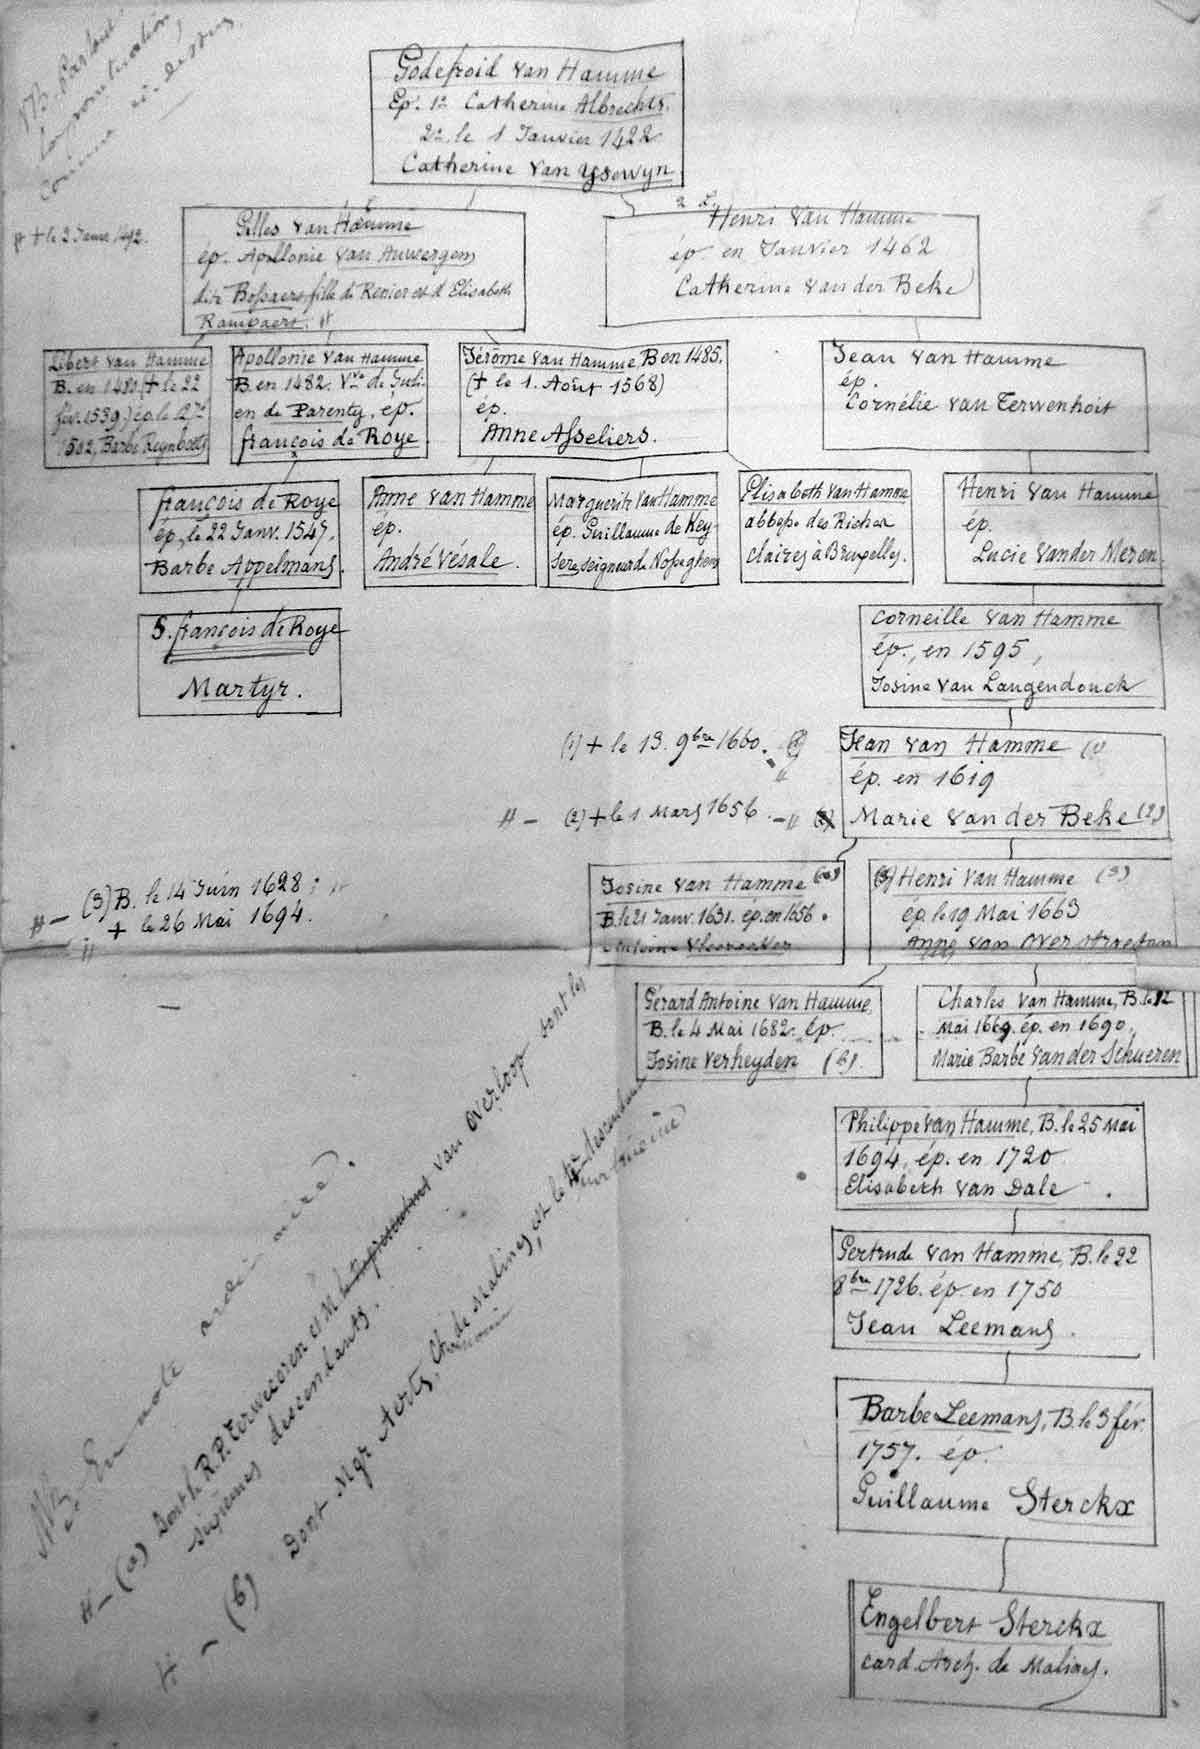 NB. Partout
la ponctuation,
comme ci-dessus
Godefroid van Hamme
Ép. 1º Catherine Albrechts.
2º. le 1 Janvier 1422
Catherine van Ysewyn.
# + le 2 1492.
Gilles van Hamme
ép. Apollonie van Auwergem
dite Bossaers, fille de Renier et d'Elisabeth
Rampaert. #
Henri van Hamme
ép. en Janvier 1462
Catherine van der Beke
Libert van Hamme
B. en 1480 († le 22
fév. 1539) ép. le
1502, Barbe Reynbouts
Apollonie van Hamme
B. en 1482. Vve de Guli-
en de Parenty, ép.
françois de Roye
Jérôme van Hamme, B en 1485.
(+ le 1. Août 1568)
ép.
Anne Asseliers.
Jean van Hamme
ép.
Cornélie van Terwenhoit
françois de Roye
ép, le 22 Janv. 1547.
Barbe Appelmans.
Anne van Hamme
ép.
André Vésale.
Marguerite Van Hamme
ép. Guillaume de Key-
sere, seigneur de Nosseghem
Elisabeth van Hamme
abbesse des Riches
claires à Bruxelles.
Henri van Hamme
ép.
Lucie van der Meren.
S. françois de Roye
Martyr.
Corneille van Hamme
ép., en 1595,
Josine van Langendonck
(1) + le 13. 9bre 1660.
Jean van Hamme (1)
ép. en 1619
# - (2) + le 1 Mars 1656. - "
Marie van der Beke (2)
# - (3) B. le 14 Juin 1628; #
+ le 26 Mai 1694.
"
Josine van Hamme (a)
B. le 21 Janv. 1631. ép. en 1656.
Antoine
(3) Henri van Hamme (3)
ép. le 19 Mai 1663
Anne van Overstraeten
Gérard Antoine van Hamme,
B. le 4 Mai 1682. ép.
Josine Verheyden (b).
Charles van Hamme, B. le 12
Mai 1669. ép. en 1690,
Marie Barbe van der Schueren
Philippe van Hamme, B. le 25 Mai
1694, ép. en 1720.
Elisabeth van Dale.
Gertrude van Hamme, B. le 22
8bre 1726. ép. en 1750
Jean Leemans.
Barbe Leemans, B. le 3 fév.
1757. ép.
Guillaume Sterckx
Engelbert Sterckx
card. Arch. de Malines.
NB. En note
# - (a) Dont le R.P. Terwecoren et M. van Overloop sont les
sixièmes descendants.
# - (b) Dont Mgr Aerts, Ch. de Malines, est le descendant